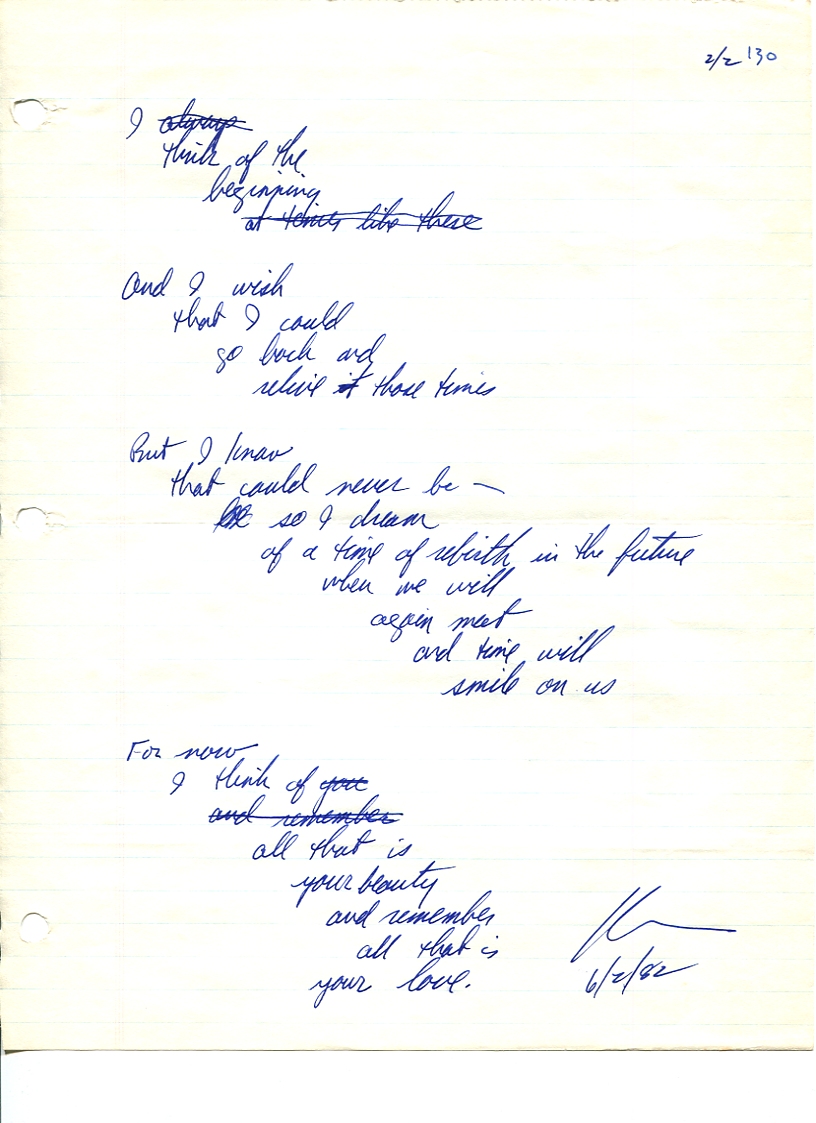 2/2 '30
I always
think of the
beginning
at times like these
And I wish
that I could
go back and
relive it those times
But I know
that could never be —
so I dream
of a time of rebirth in the future
when we will
again meet
and time will
smile on us
For now
I think of you
and remember
all that is
your beauty
and remember
all that is
your love.
6/2/82